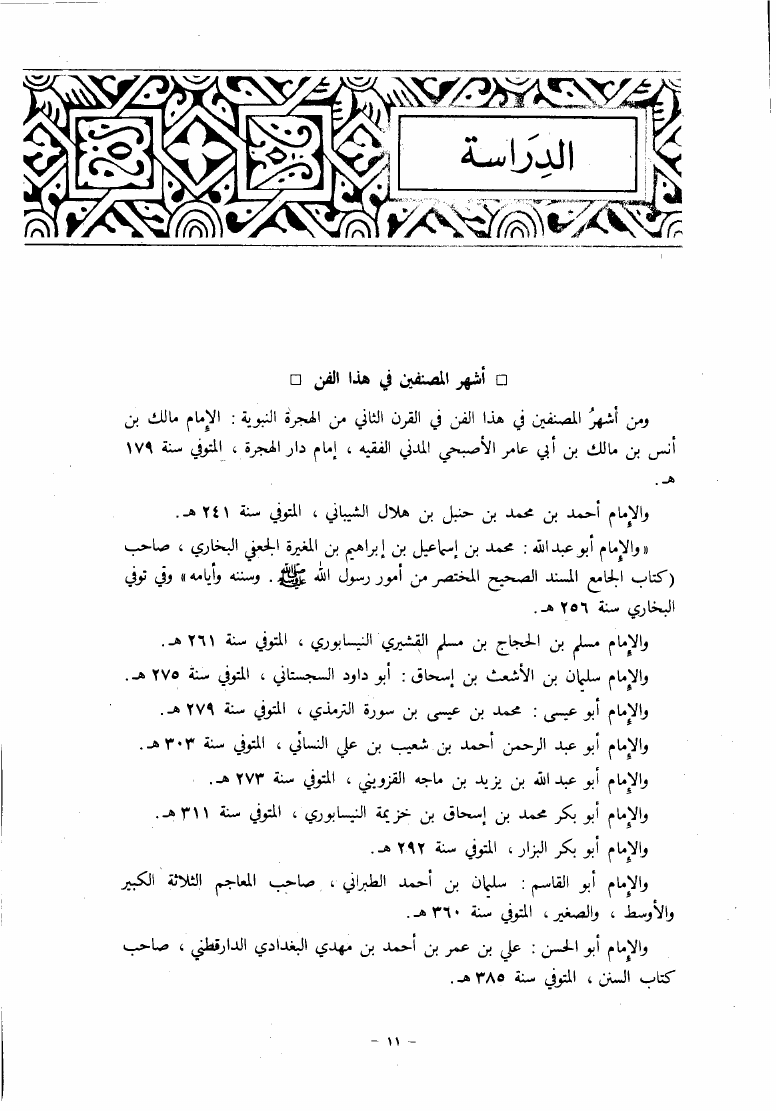 الدِرَاسة
□ أشهر المصنفين في هذا الفن □
ومن أشهرُ المصنفين في هذا الفن في القرن الثاني من الهجرة النبوية : الإمام مالك بن
أنس بن مالك بن أبي عامر الأصبحي المدني الفقيه ، إمام دار الهجرة ، المتوفي سنة ١٧٩
هـ .
والإمام أحمد بن محمد بن حنبل بن هلال الشيباني ، المتوفي سنة ٢٤١ هـ .
«والإمام أبو عبدالله : محمد بن إسماعيل بن إبراهيم بن المغيرة الجعفي البخاري ، صاحب
(كتاب الجامع المسند الصحيح المختصر من أمور رسول الله ﷺ . وسننه وأيامه» وفي توفي
البخاري سنة ٢٥٦ هـ .
والإمام مسلم بن الحجاج بن مسلم القشيري النيسابوري ، المتوفي سنة ٢٦١ هـ .
والإمام سليمان بن الأشعث بن إسحاق : أبو داود السجستاني ، المتوفي سنة ٢٧٥ هـ .
والإمام أبو عيسى : محمد بن عيسى بن سورة الترمذي ، المتوفي سنة ٢٧٩ هـ .
والإمام أبو عبد الرحمن أحمد بن شعيب بن علي النسائي ، المتوفي سنة ٣٠٣ هـ .
والإمام أبو عبد الله بن يزيد بن ماجه القزويني ، المتوفي سنة ٢٧٣ هـ .
والإمام أبو بكر محمد بن إسحاق بن خزيمة النيسابوري ، المتوفي سنة ٣١١ هـ .
والإمام أبو بكر البزار ، المتوفي سنة ٢٩٢ هـ .
والإمام أبو القاسم : سليمان بن أحمد الطبراني ، صاحب المعاجم الثلاثة الكبير
والأوسط ، والصغير ، المتوفي سنة ٣٦٠ هـ .
والإمام أبو الحسن : علي بن عمر بن أحمد بن مهدي البغدادي الدارقطني ، صاحب
كتاب السنن ، المتوفي سنة ٣٨٥ هـ .
– ١١ –